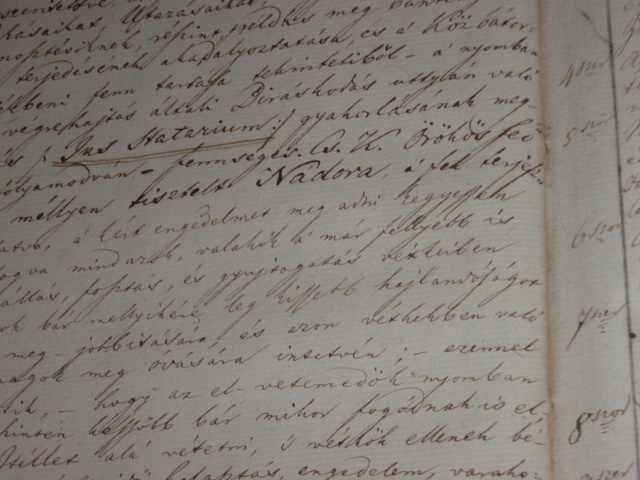 kásaikat, Utazásaikat,
noptésöknek, repint, példás meg
terjedésének akadályoztatása, és a' Köz bátor-
ékbeni fenn tartása tekintetiből – a' nyomban
végrehajtás általi Biráskodás uttyán való
és /: Jus Statarium :/ gyakorlásának meg-
folyamodván – fennséges Cs. K. Örökös
méllyen tisztelt Nádora, a' fel terjesz-
tatva, a' kért engedelmet meg adni kegyessen
fogva mind azok, valakik a' már fellyebb is
állás, foptás, és gyujtogatás vétkeiben
ok bár mellyikére leg kissebb hajlandóságot
meg-jobbitására, és azon vétkekben való
magok meg óvására intetvén; – ezennel
tik, – hogy az el-vetemedők nyomban
hinten később bár mihor fogódnak is el-
Itéllet alá vétetni, 's vétkök ellenek bé-
engedelem, varako-
4szer
5ször
6szor
7szer
8szor